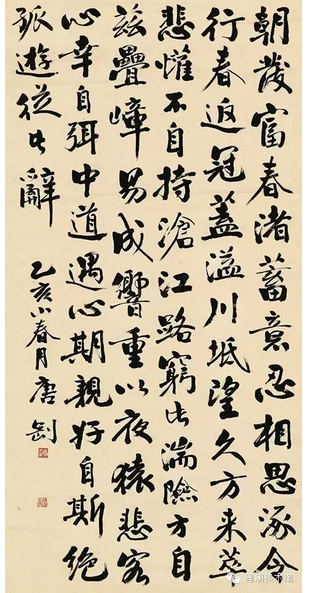 朝發富春渚蓄意忍相思涿令
行春返冠蓋溢川坻望久方來萃
悲懽不自持滄江路窮此湍險方自
茲疊嶂易成響重以夜猿悲客
心幸自弭中道遇心期親好自斯絕
孤遊從此辭
乙亥小春月唐